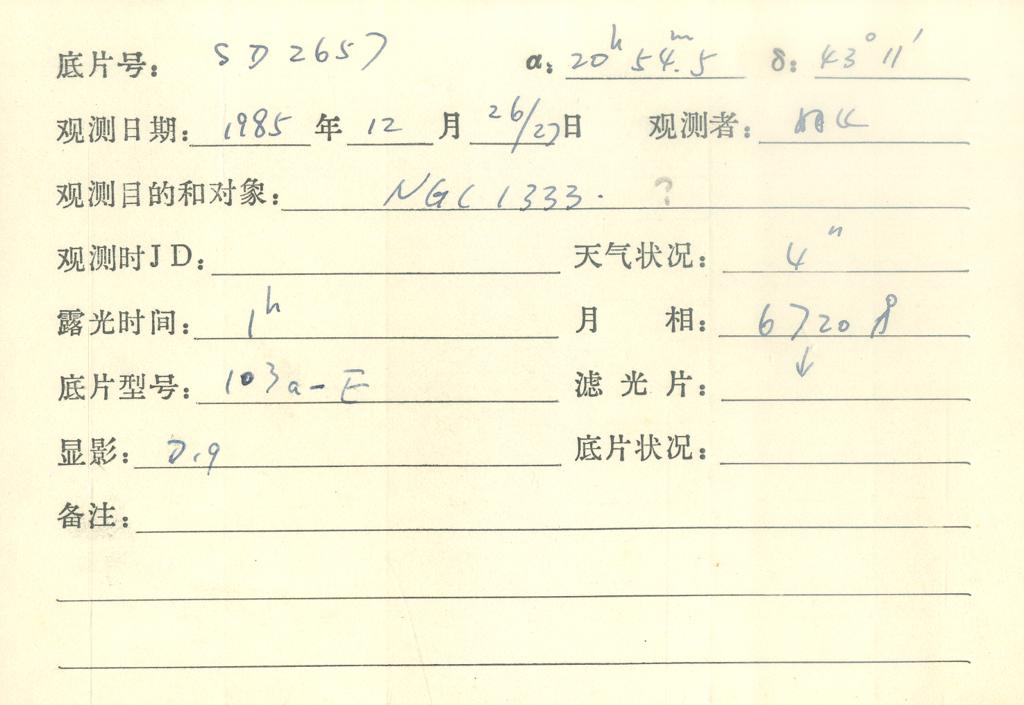 底片号: SD2657 α: 20h 54m.5 δ: 43° 11′
观测日期: 1985 年 12 月 26/27 日 观测者:
观测目的和对象: NGC 1333. ?
观测时JD: 天气状况: 4"
露光时间: 1h 月 相: 6720Å
底片型号: 103a-E 滤光片: ↓
显影: D.19
底片状况:
备注: